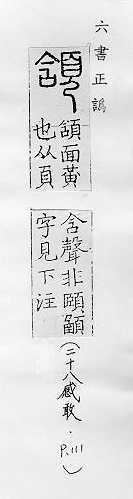 六書正譌
頷
頷面黃
也从頁
含聲非頤顄
字見下注
(二十八感敢．P.111)